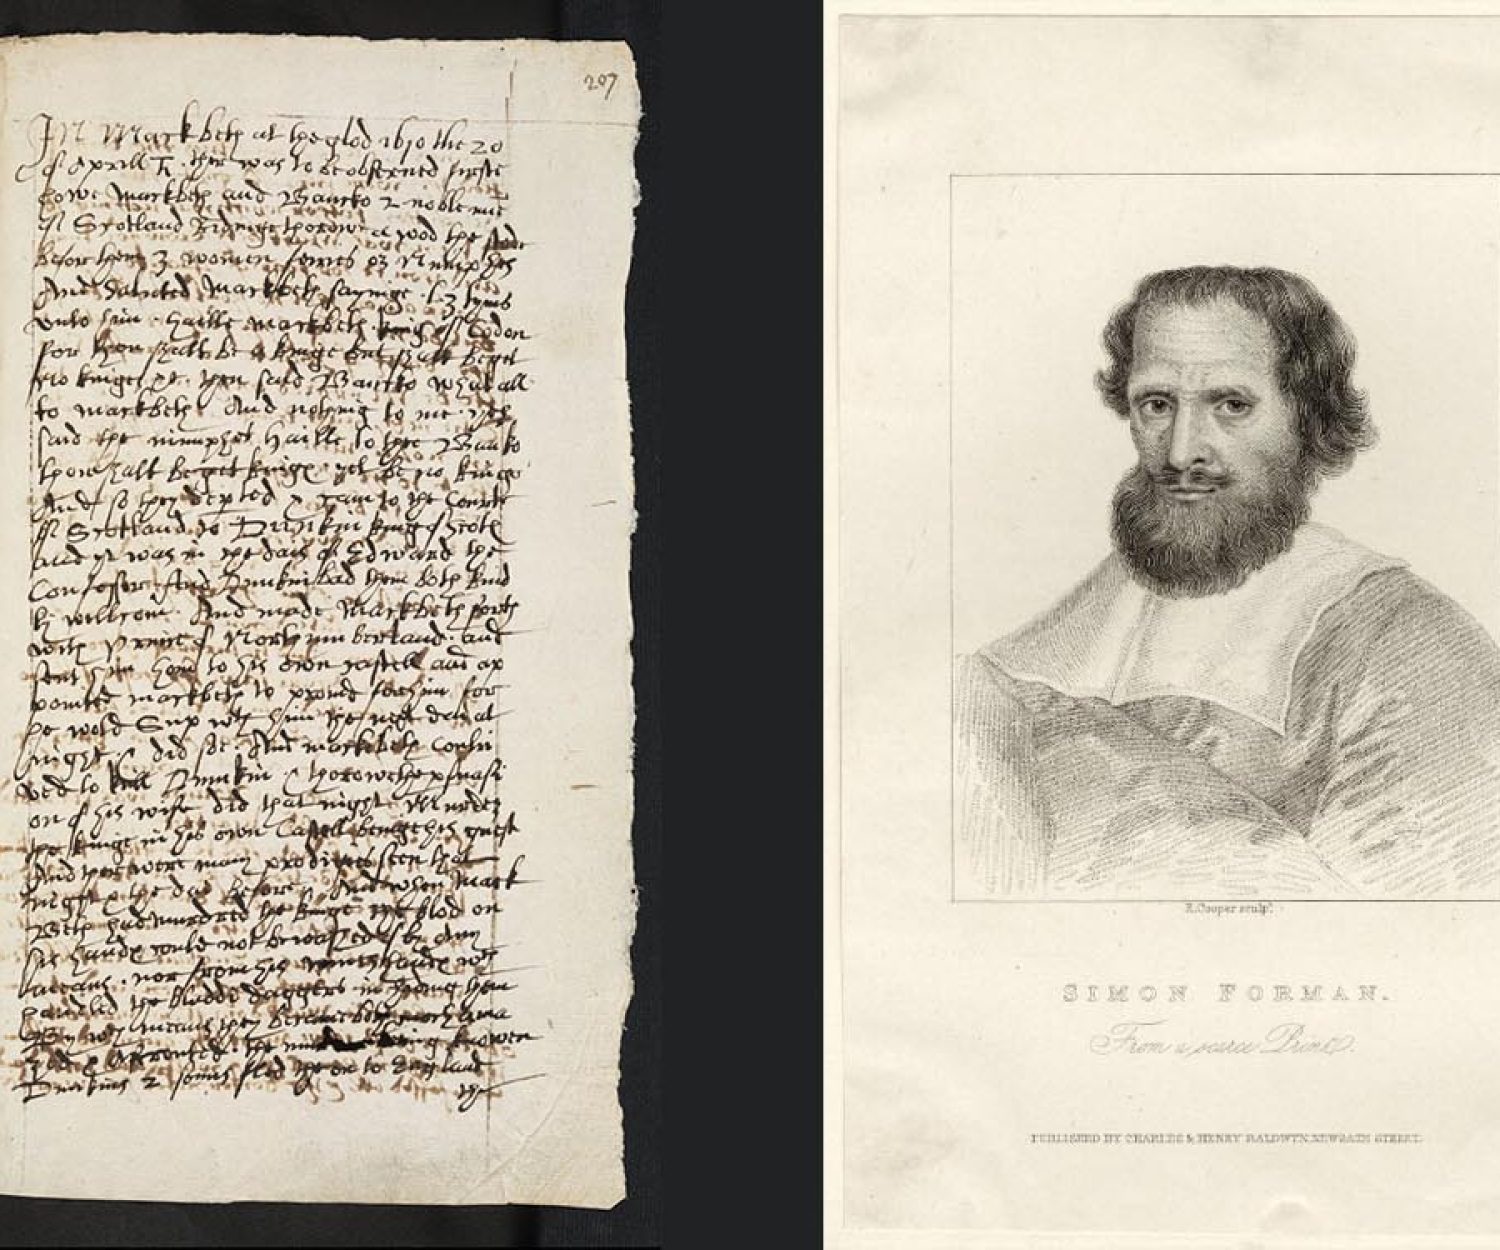 207
In Mackbeth at the glob 1610 the 20
of Aprill ♄. ther was to be obserued firste
howe Mackbeth and Bancko 2 noble men
of Scotland Ridinge thorow a wod the stode
before them 3 women feiries or Nimphes
And Saluted Mackbeth sayinge. 3 tyms
vnto him. haille mackbeth king of Codon
for thou shalt be a kinge but shalt beget
no kinges &c. then said Bancko what all
to mackbeth And nothing to me. yes
said the nimphes haille to thee Bancko
thou shalt beget kinges yet be no kinge
And so they departed & cam to the Courte
of Scotland to Dunkin king of Scotes
and yt was in the dais of Edward the
Confessor. And Dunkin bad them both kind
ly wellcom. And made Mackbeth forth
with Prince of Northumberland. and
sent him hom to his own castell and ap
pointed mackbeth to prouid for him for
he wold Sup with him the next dai at
night. & did soe. And mackebeth contri
ued to kill Dunkin & thorowe the persuasi
on of his wife did that night Murder
the kinge in his own Castell beinge his guest
And ther were many prodigies seen that
night & the dai before. And when Mack
Beth had murdred the kinge the blod on
his handes could not be washed of by Any
meanes. nor from his wiues handes which
handled the bluddi daggers in hiding them
By which means they became both moch ama
zed & Affronted. the murder being knowen
Dunkins 2 sonns fled the on to England
the
R. Cooper sculp.t
SIMON FORMAN.
From a scarce Print.
PUBLISHED BY CHARLES & HENRY BALDWYN, NEWGATE STREET.